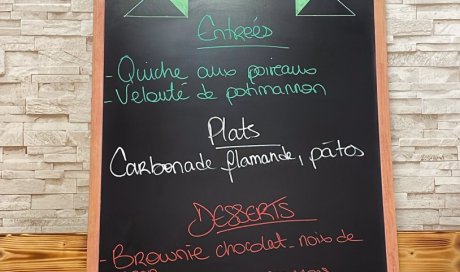 Entrées
- Quiche aux poireaux
- Velouté de potimarron
Plats
Carbonade flamande, pâtes
DESSERTS
- Brownie chocolat - noix de